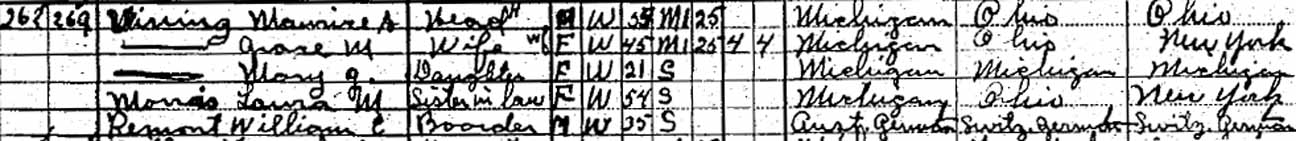 262 269 Vining Maurice A Head M W 55 M1 25 Michigan Ohio Ohio
—— Grace M Wife F W 45 M1 25 4 4 Michigan Ohio New York
—— Mary J. Daughter F W 21 S Michigan Michigan Michigan
Morris Laura M Sister in law F W 54 S Michigan Ohio New York
Remont William C Boarder M W 35 S Aust. German Switz. German Switz. German